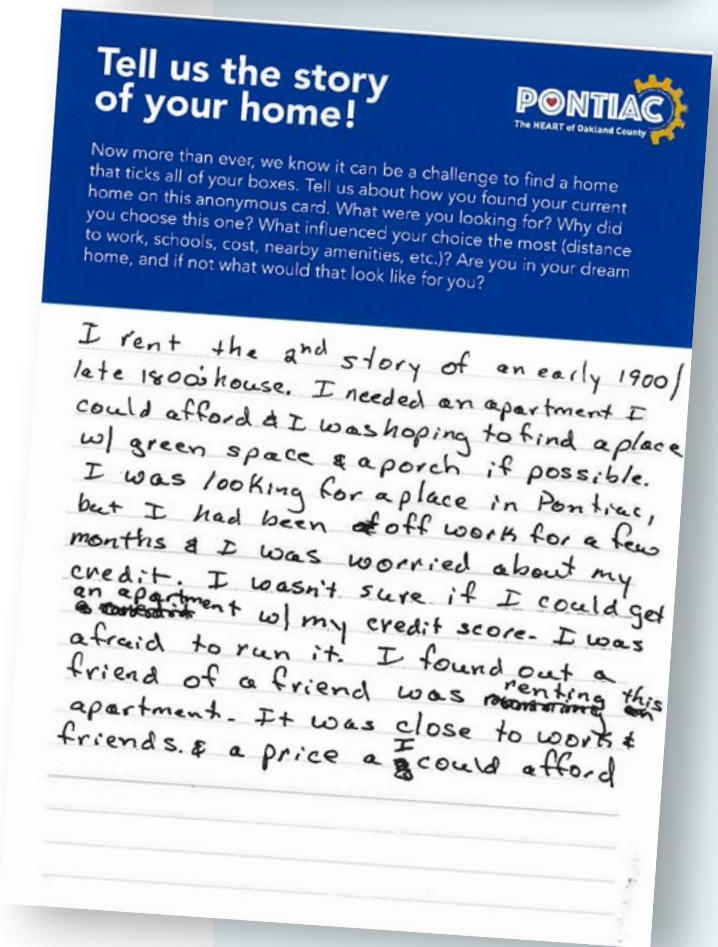 Tell us the story
of your home!
PONTIAC
The HEART of Oakland County
Now more than ever, we know it can be a challenge to find a home
that ticks all of your boxes. Tell us about how you found your current
home on this anonymous card. What were you looking for? Why did
you choose this one? What influenced your choice the most (distance
to work, schools, cost, nearby amenities, etc.)? Are you in your dream
home, and if not what would that look like for you?
I rent the 2nd story of an early 1900/
late 1800's house. I needed an apartment I
could afford & I was hoping to find a place
w/ green space & a porch if possible.
I was looking for a place in Pontiac,
but I had been off work for a few
months & I was worried about my
credit. I wasn't sure if I could get
an apartment w/ my credit score. I was
afraid to run it. I found out a
friend of a friend was renting this
apartment. It was close to work &
friends. & a price a I could afford